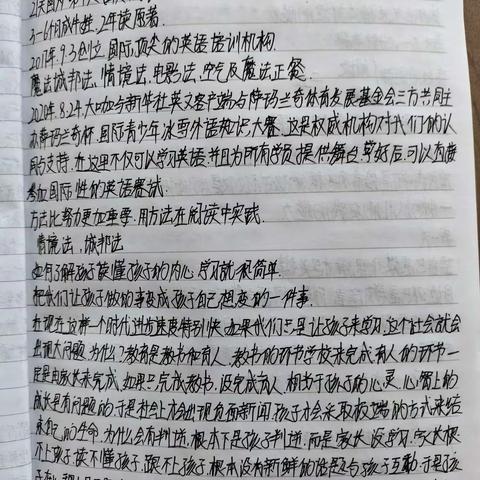 3-6个月成牛娃,2年读原著.
2017年.9.3创立国际顶尖的英语培训机构.
魔法城邦法,情境法,电影法,空气及魔法正餐.
2024.8.24.大咖与新华社英文客户端与萨玛兰奇体育发展基金会三方共同主
办萨玛兰奇杯国际青少年冰雪外语知识大赛.这是权威机构对我们的认
同与支持.在这里不仅可以学习英语.并且为所有学员提供舞台.学好后.可以直接
参加国际性的英语赛试.
方法比努力更加重要.用方法在阅读中实践.
情境法,城邦法
如何了解孩子读懂孩子的内心,学习就很简单.
把我们让孩子做的事变成孩子自己想要的一件事.
在现在这样一个时代进步速度特别快.如果我们只是让孩子来学习.这个社会就会
出现大问题.为什么?教育是教书和育人.教书的环节学校来完成育人的环节一
定是由家长来完成.如果只完成教书.没完成育人.相当于孩子的心灵心智上的
成长是有问题的.于是社会上才会出现负面新闻.孩子才会采取极端的方式来结
束自己的生命.为什么会有叛逆.根本不是孩子叛逆.而是家长没学习.家长跟
不上孩子.读不懂孩子.跟不上孩子.根本没有新鲜的话题与孩子互动.于是孩